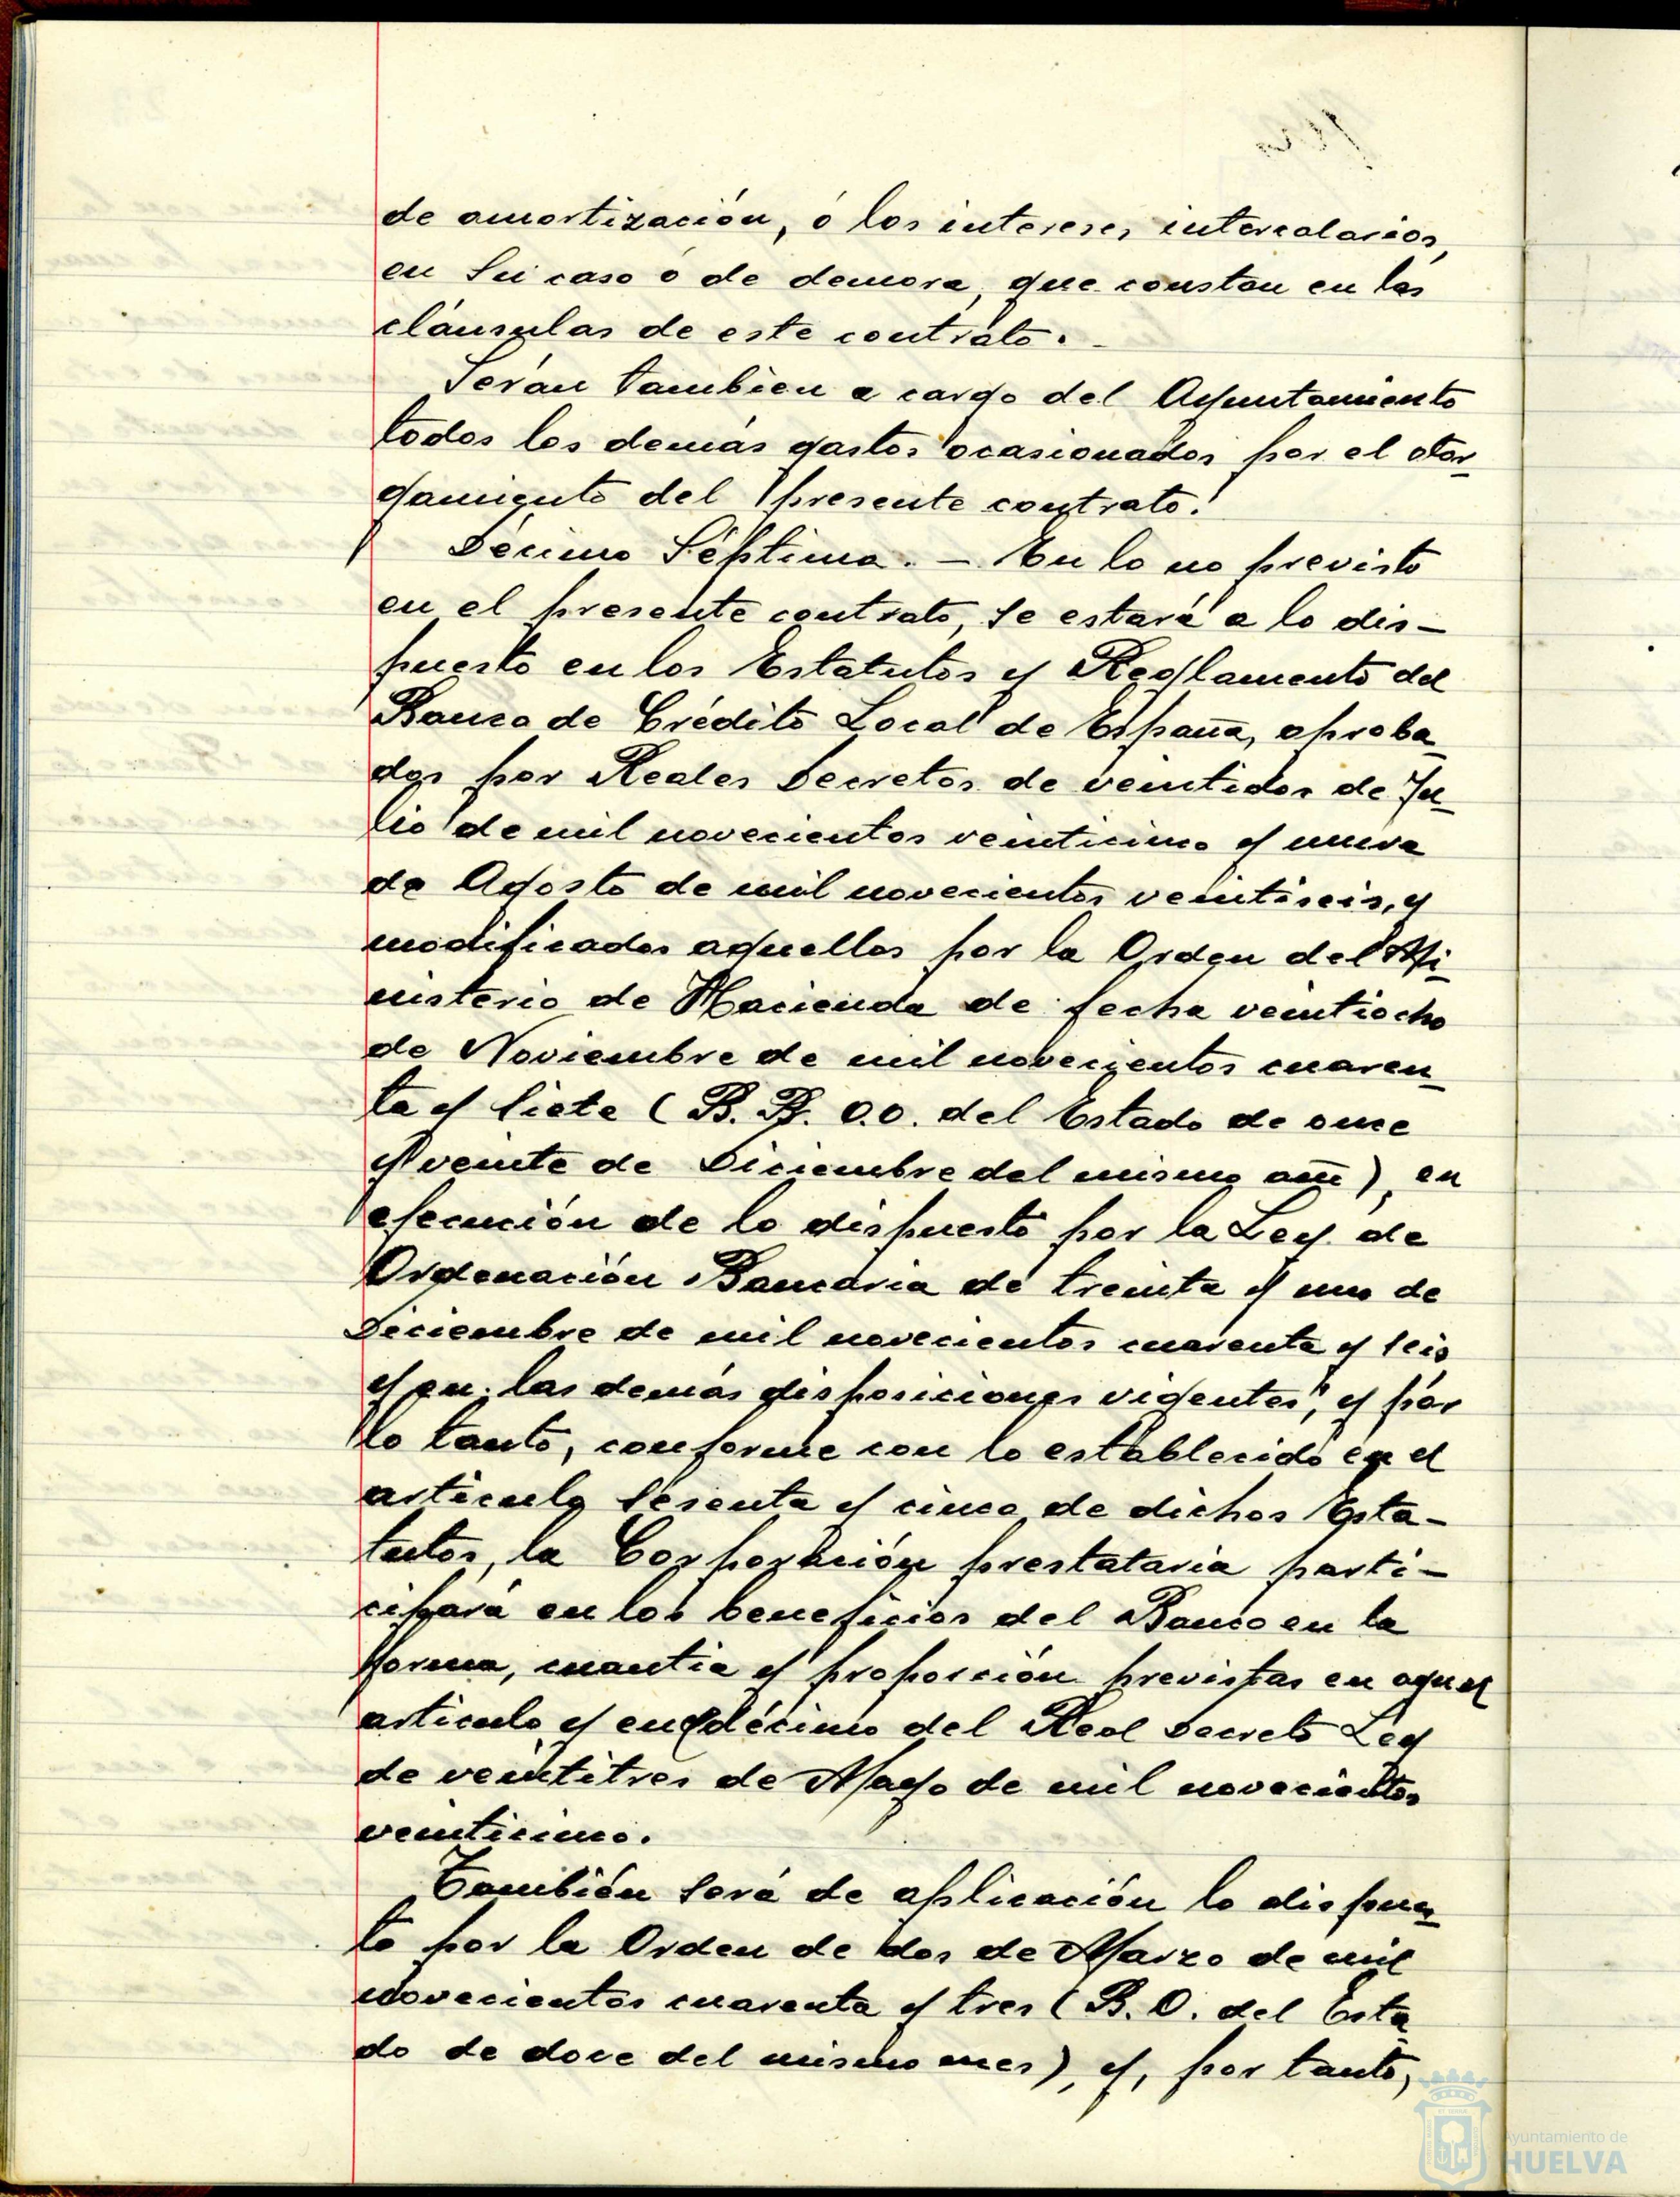 de amortización, ó los intereses intercalarios,
en su caso o de demora, que constan en las
cláusulas de este contrato.
Serán tambien a cargo del Ayuntamiento
todos los demás gastos ocasionados por el otor
gamiento del presente contrato.
Décimo Séptima. — En lo no previsto
en el presente contrato, se estará a lo dis-
puesto en los Estatutos y Reglamento del
Banco de Crédito Local de España, aproba
dos por Reales Decretos de veintidos de Ju
lio de mil novecientos veinticinco y nueve
de Agosto de mil novecientos veintiseis, y
modificados aquellos por la Orden del Mi
nisterio de Hacienda de fecha veintiocho
de Noviembre de mil novecientos cuaren
ta y siete (B. B. O.O. del Estado de once
y veinte de Diciembre del mismo año), en
ejecución de lo dispuesto por la Ley de
Ordenación Bancaria de treinta y uno de
Diciembre de mil novecientos cuarenta y seis
y en las demás disposiciones vigentes, y por
lo tanto, conforme con lo establecido en el
articulo sesenta y cinco de dichos Esta-
tutos, la Corporación prestataria parti-
cipará en los beneficios del Banco en la
forma, cuantia y proporción previstas en aquel
articulo y en el décimo del Real Decreto Ley
de veintitres de Mayo de mil novecientos
veinticinco.
También será de aplicación lo dispues
to por la Orden de dos de Marzo de mil
novecientos cuarenta y tres (B. O. del Esta
do de doce del mismo mes), y, por tanto,
Ayuntamiento de
HUELVA